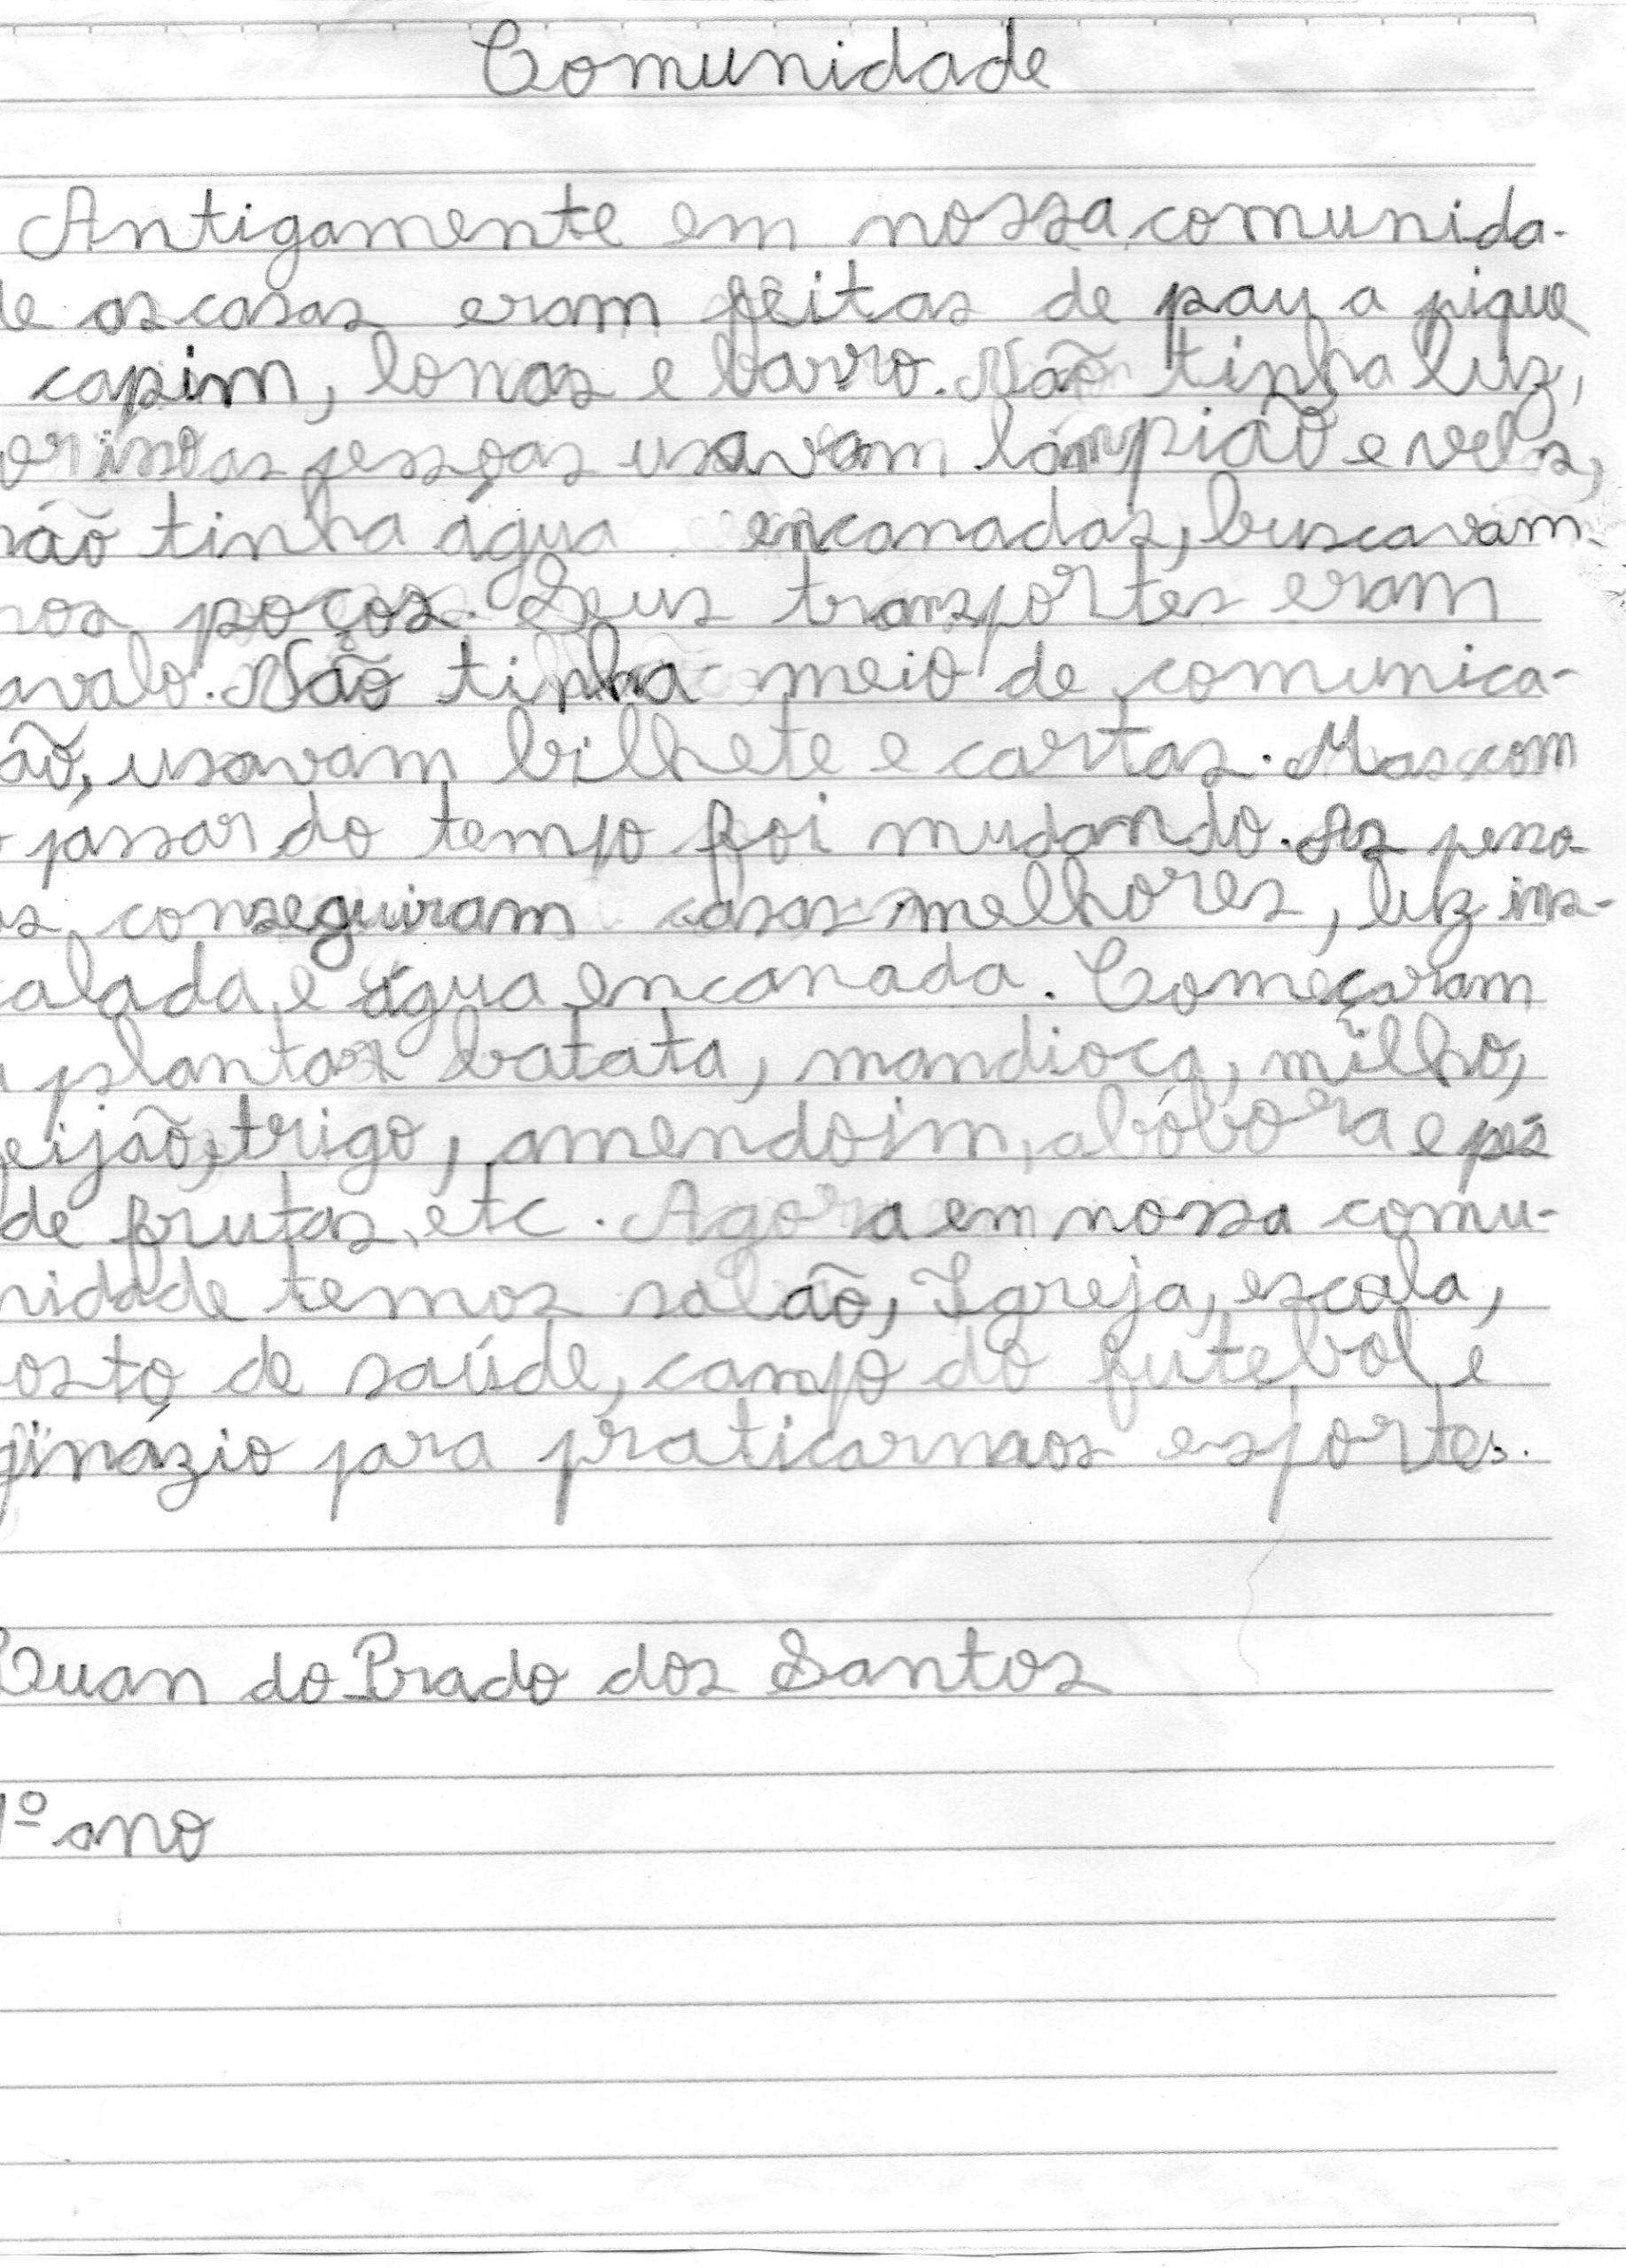 Comunidade
Antigamente em nossa comunida-
de as casas eram feitas de pau a pique
capim, lonas e barro. Não tinha luz,
or isso as pessoas usavam lâmpião e velas,
não tinha água encanadas, buscavam
nos poços. Seus transportes eram
avalo. Não tinha meio de comunica-
ão, usavam bilhete e cartas. Mas com
o passar do tempo foi mudando. As pesso-
as conseguiram casas melhores, luz ins-
alada e água encanada. Começaram
a plantar batata, mandioca, milho,
eijão, trigo, amendoim, abóbora e pés
de frutas, etc. Agora em nossa comu-
nidade temos salão, Igreja, escola,
osto de saúde, campo do futebol e
ginázio para praticarmos esportes.
Luan do Prado dos Santos
º ano